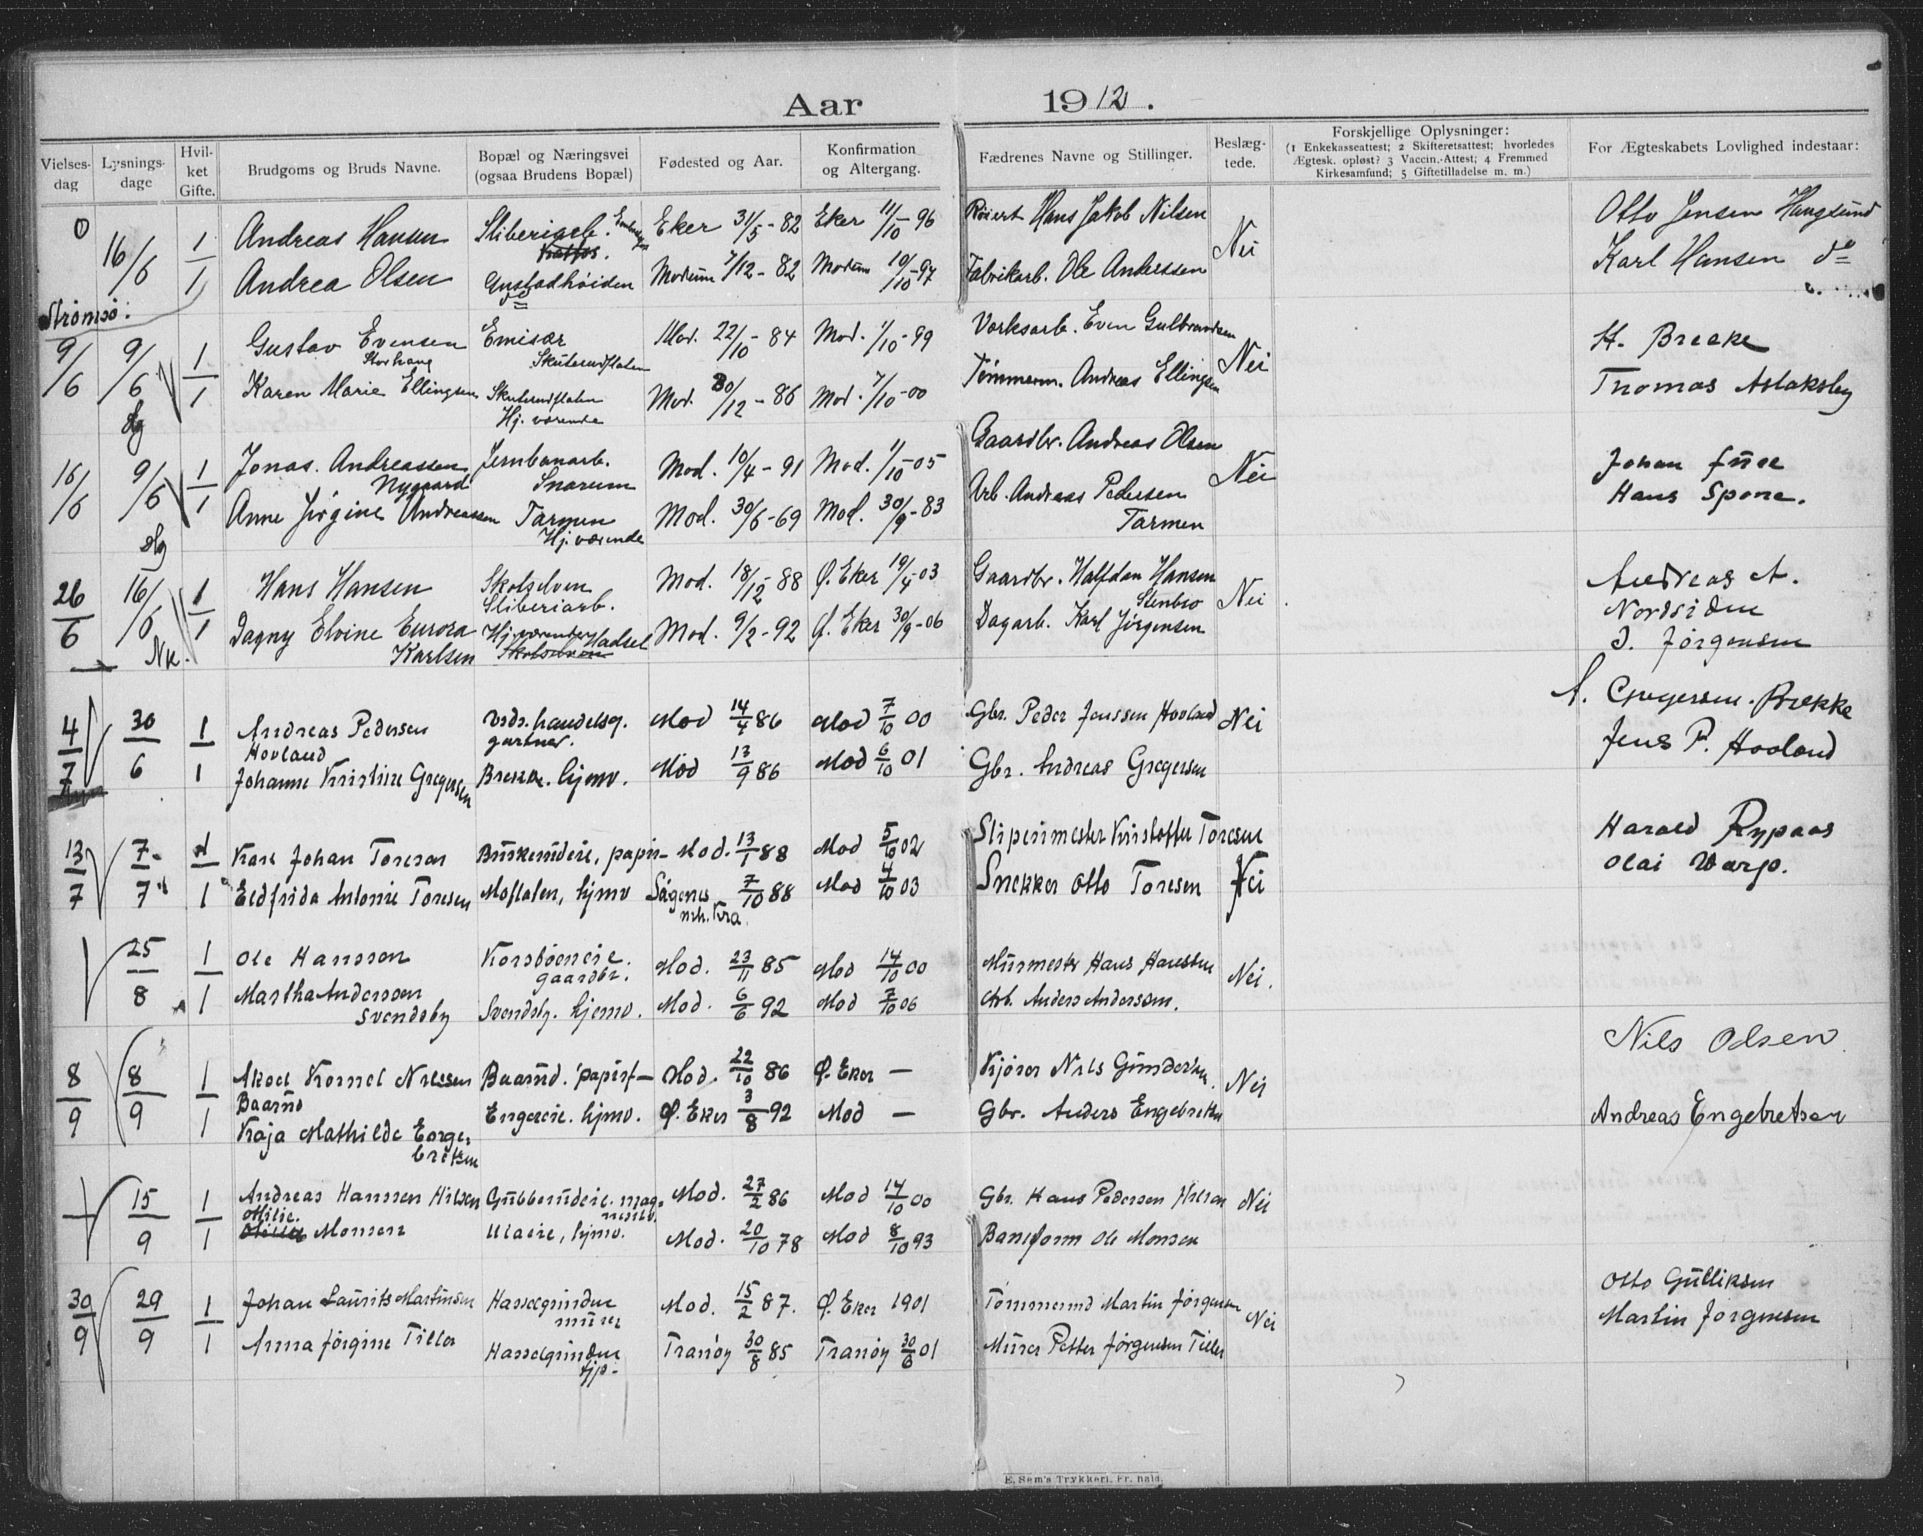 Aar 1912.
Vielses-dag
Lysnings-dage
Hvilket Gifte.
Brudgoms og Bruds Navne.
Bopæl og Næringsvei (ogsaa Brudens Bopæl)
Fødested og Aar.
Konfirmation og Altergang.
Fædrenes Navne og Stillinger.
Beslægtede.
Forskjellige Oplysninger:
(1 Enkekasseattest; 2 Skifteretsattest; hvorledes Ægtesk. opløst? 3 Vaccin.-Attest; 4 Fremmed Kirkesamfund; 5 Giftetilladelse m. m.)
For Ægteskabets Lovlighed indestaar:
0 16/6 1 Andreas Hansen Sliberiarb. Eker 31/5-82 Eker 11/10-96 Hans Jakob Nilsen Nei Otto Jensen Haugsund
1 Andrea Olsen Modum 7/12-82 Modum 10/10-97 Fabrikarb. Ole Anderssen Karl Hansen do
Strømsø:
9/6 9/6 1 Gustav Evensen Emisær Mod. 22/10-84 Mod. 1/10-99 Verksarb. Even Gulbrandsen Nei H. Brekke
Storhaug Skuterudflaten
1 Karen Marie Ellingsen Skuterudflaten Mod. 30/12-86 Mod. 7/10-00 Tømmerm. Andreas Ellingsen Thomas Aslaksby
Hj. værende
16/6 9/6 1 Jonas Andreassen Jernbanarb. Mod. 10/4-91 Mod. 1/10-05 Gaardbr. Andreas Olsen Nei Johan Fure
Nygaard Snarum
1 Anne Jørgine Andreassen Tarmen Mod. 30/6-69 Mod. 30/9-83 Arb. Andreas Pedersen Hans Spone.
Hj. værende Tarmen
26/6 16/6 1 Hans Hansen Skotselven Mod. 18/12-88 Ø. Eker 19/4-03 Gaardbr. Halfdan Hansen Nei Andreas A.
Sliberiarb. Stenbro Nordsiden
1 Dagny Elvine Eurora Hj. værende Hadsel Mod. 9/2-92 Ø. Eker 30/9-06 Dagarb. Karl Jørgensen J. Jørgensen
Karlsen Skotselven
4/7 30/6 1 Andreas Pedersen handelsg. Mod 14/4 86 Mod 7/10 00 Gbr. Peder Jenssen Hovland Nei A. Gregersen. Brekke
Hovland gartner.
1 Johanne Kristine Gregersen Brekke. hjemv. Mod 13/9 86 Mod 6/10 01 Gbr. Andreas Gregersen Jens P. Hovland
13/7 7-/7 1 Karl Johan Toresen Buskerudeie, papir- Mod. 13/1 88 Mod 5/10 02 Sliperimester Kristoffer Toresen Nei Harald Rypaas
1 Eldfrida Antonie Toresen Moflaten, hjmv Sagenes 7/10 88 Mod 4/10 03 Snekker Otto Toresen Olai Warp.
Kra.
25/8 1 Ole Hanssen Korsbøeneie. Mod. 23/11 85 Mod 14/10 00 Murmester Hans Hanssen Nei.
gaardbr.
1 Martha Anderssen Svendsby. hjemv. Mod. 6/6 92 Mod 7/10 06 Arb. Anders Anderssen.
Svendsby
8/9 8/9 1 Aksel Kornel Nilssen Baarud. papirf- Mod. 22/10 86 Ø. Eker — Kjører Nils Gundersen. Nei Nils Olsen
Baarud
1 Kaja Mathilde Engebretsen Engereie. hjmv. Ø. Eker 3/8 92 Mod — Gbr. Anders Engebretsen Andreas Engebretsen
15/9 1 Andreas Hanssen Hilsen Gubberudeie. Mod. 27/2 86 Mod 14/10 00 Gbr. Hans Pedersen Hilsen Nei
1 Milie Monsen Ulaeie, hjmv. Mod. 20/10 78 Mod 8/10 93 Baneform Ole Monsen
30/9 29/9 1 Johan Laurits Martinsen Hasselgrinden Mod. 15/2 87. Ø. Eker 1901 Tømmermd Martin Jørgensen Nei Otto Gulliksen
murer
1 Anna Jørgine Tiller Hasselgrinden Tranøy 30/8 85 Tranøy 30/6 01 Murer Petter Jørgensen Tiller Martin Jørgensen
E. Sem's Trykkeri. Fr. hald.